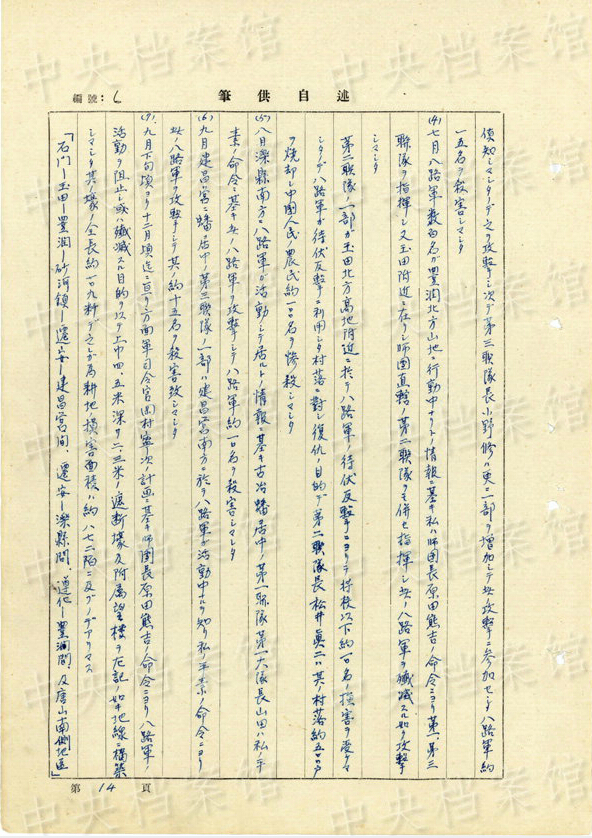 述自供筆
編號：6
偵知シマシタノデ之ヲ攻撃シ次デ第三聯隊長小野修ハ更ニ一部ヲ増加シテ此ノ攻撃ニ参加セシメ八路軍約
一五名ヲ殺害シマシタ
(4)七月八路軍数百名ガ豊潤北方山地ニ行動中ナリトノ情報ニ基キ私ハ師団長原田熊吉ノ命令ニヨリ第一、第三
聯隊ヲ指揮シ又玉田附近ニ在リシ師団直轄ノ第二聯隊ヲモ併セ指揮シ此ノ八路軍ヲ殲滅スル如ク攻撃
シマシタ
第二聯隊ノ一部ガ玉田北方高地附近ニ於テ八路軍ノ待伏反撃ニヨリテ将校以下約一〇名ノ損害ヲ受ケマ
シタノデ八路軍ガ待伏反撃ニ利用シタ村落ニ対シ復仇ノ目的デ第二聯隊長松井眞二ハ其ノ村落約五〇〇戸
ヲ焼却シ中國人民ノ農民約一〇〇名ヲ惨殺シマシタ
(5)八月灤縣南方ニ八路軍ガ活動シテ居ルトノ情報ニ基キ古冶蟠居中ノ第一聯隊第一大隊長山田ハ私ノ平
素ノ命令ニ基キ此ノ八路軍ヲ攻撃シテ八路軍約一〇名ヲ殺害シマシタ
(6)九月建昌営ニ蟠居中ノ第三聯隊ノ一部ハ建昌営南方ニ於テ八路軍ガ活動中ナルヲ知リ私ノ平素ノ命令ニヨリ
此ノ八路軍ヲ攻撃シテ其ノ約十五名ヲ殺害致シマシタ
(7)九月下旬頃ヨリ十二月頃迄ニ亘リ方面軍司令官岡村寧次ノ計画ニ基キ師團長原田熊吉ノ命令ニヨリ八路軍ノ
活動ヲ阻止シ或ハ殲滅スル目的ヲ以テ上巾四、五米深サ二、三米ノ遮断壕及附属望楼ヲ左記ノ如キ地線ニ構築
シマシタ其ノ壕ノ全長約一〇九粁デ之レガ為耕地ノ損害面積ハ約八七二陌ニ及ブノデアリマス
「石門ー玉田ー豊潤ー砂河鎮ー遷安ー建昌営間、遷安ー灤縣間、遵化ー豊潤間及唐山南側地区」
第14頁
中央档案馆